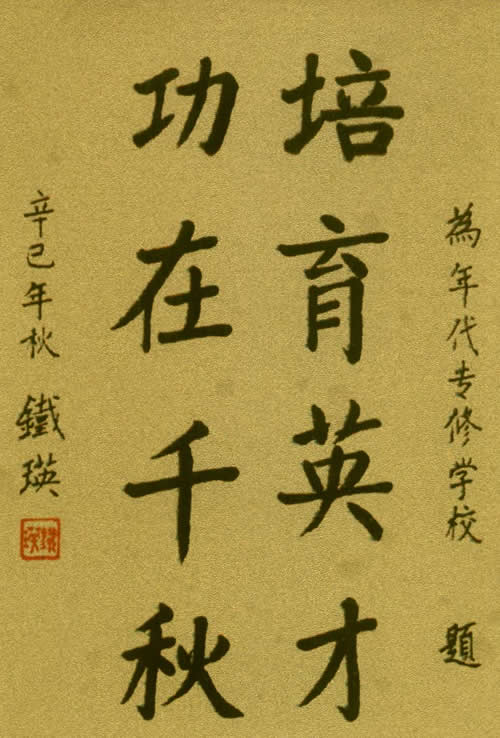 為年代专修学校 題
培育英才
功在千秋
辛巳年秋 鐵瑛